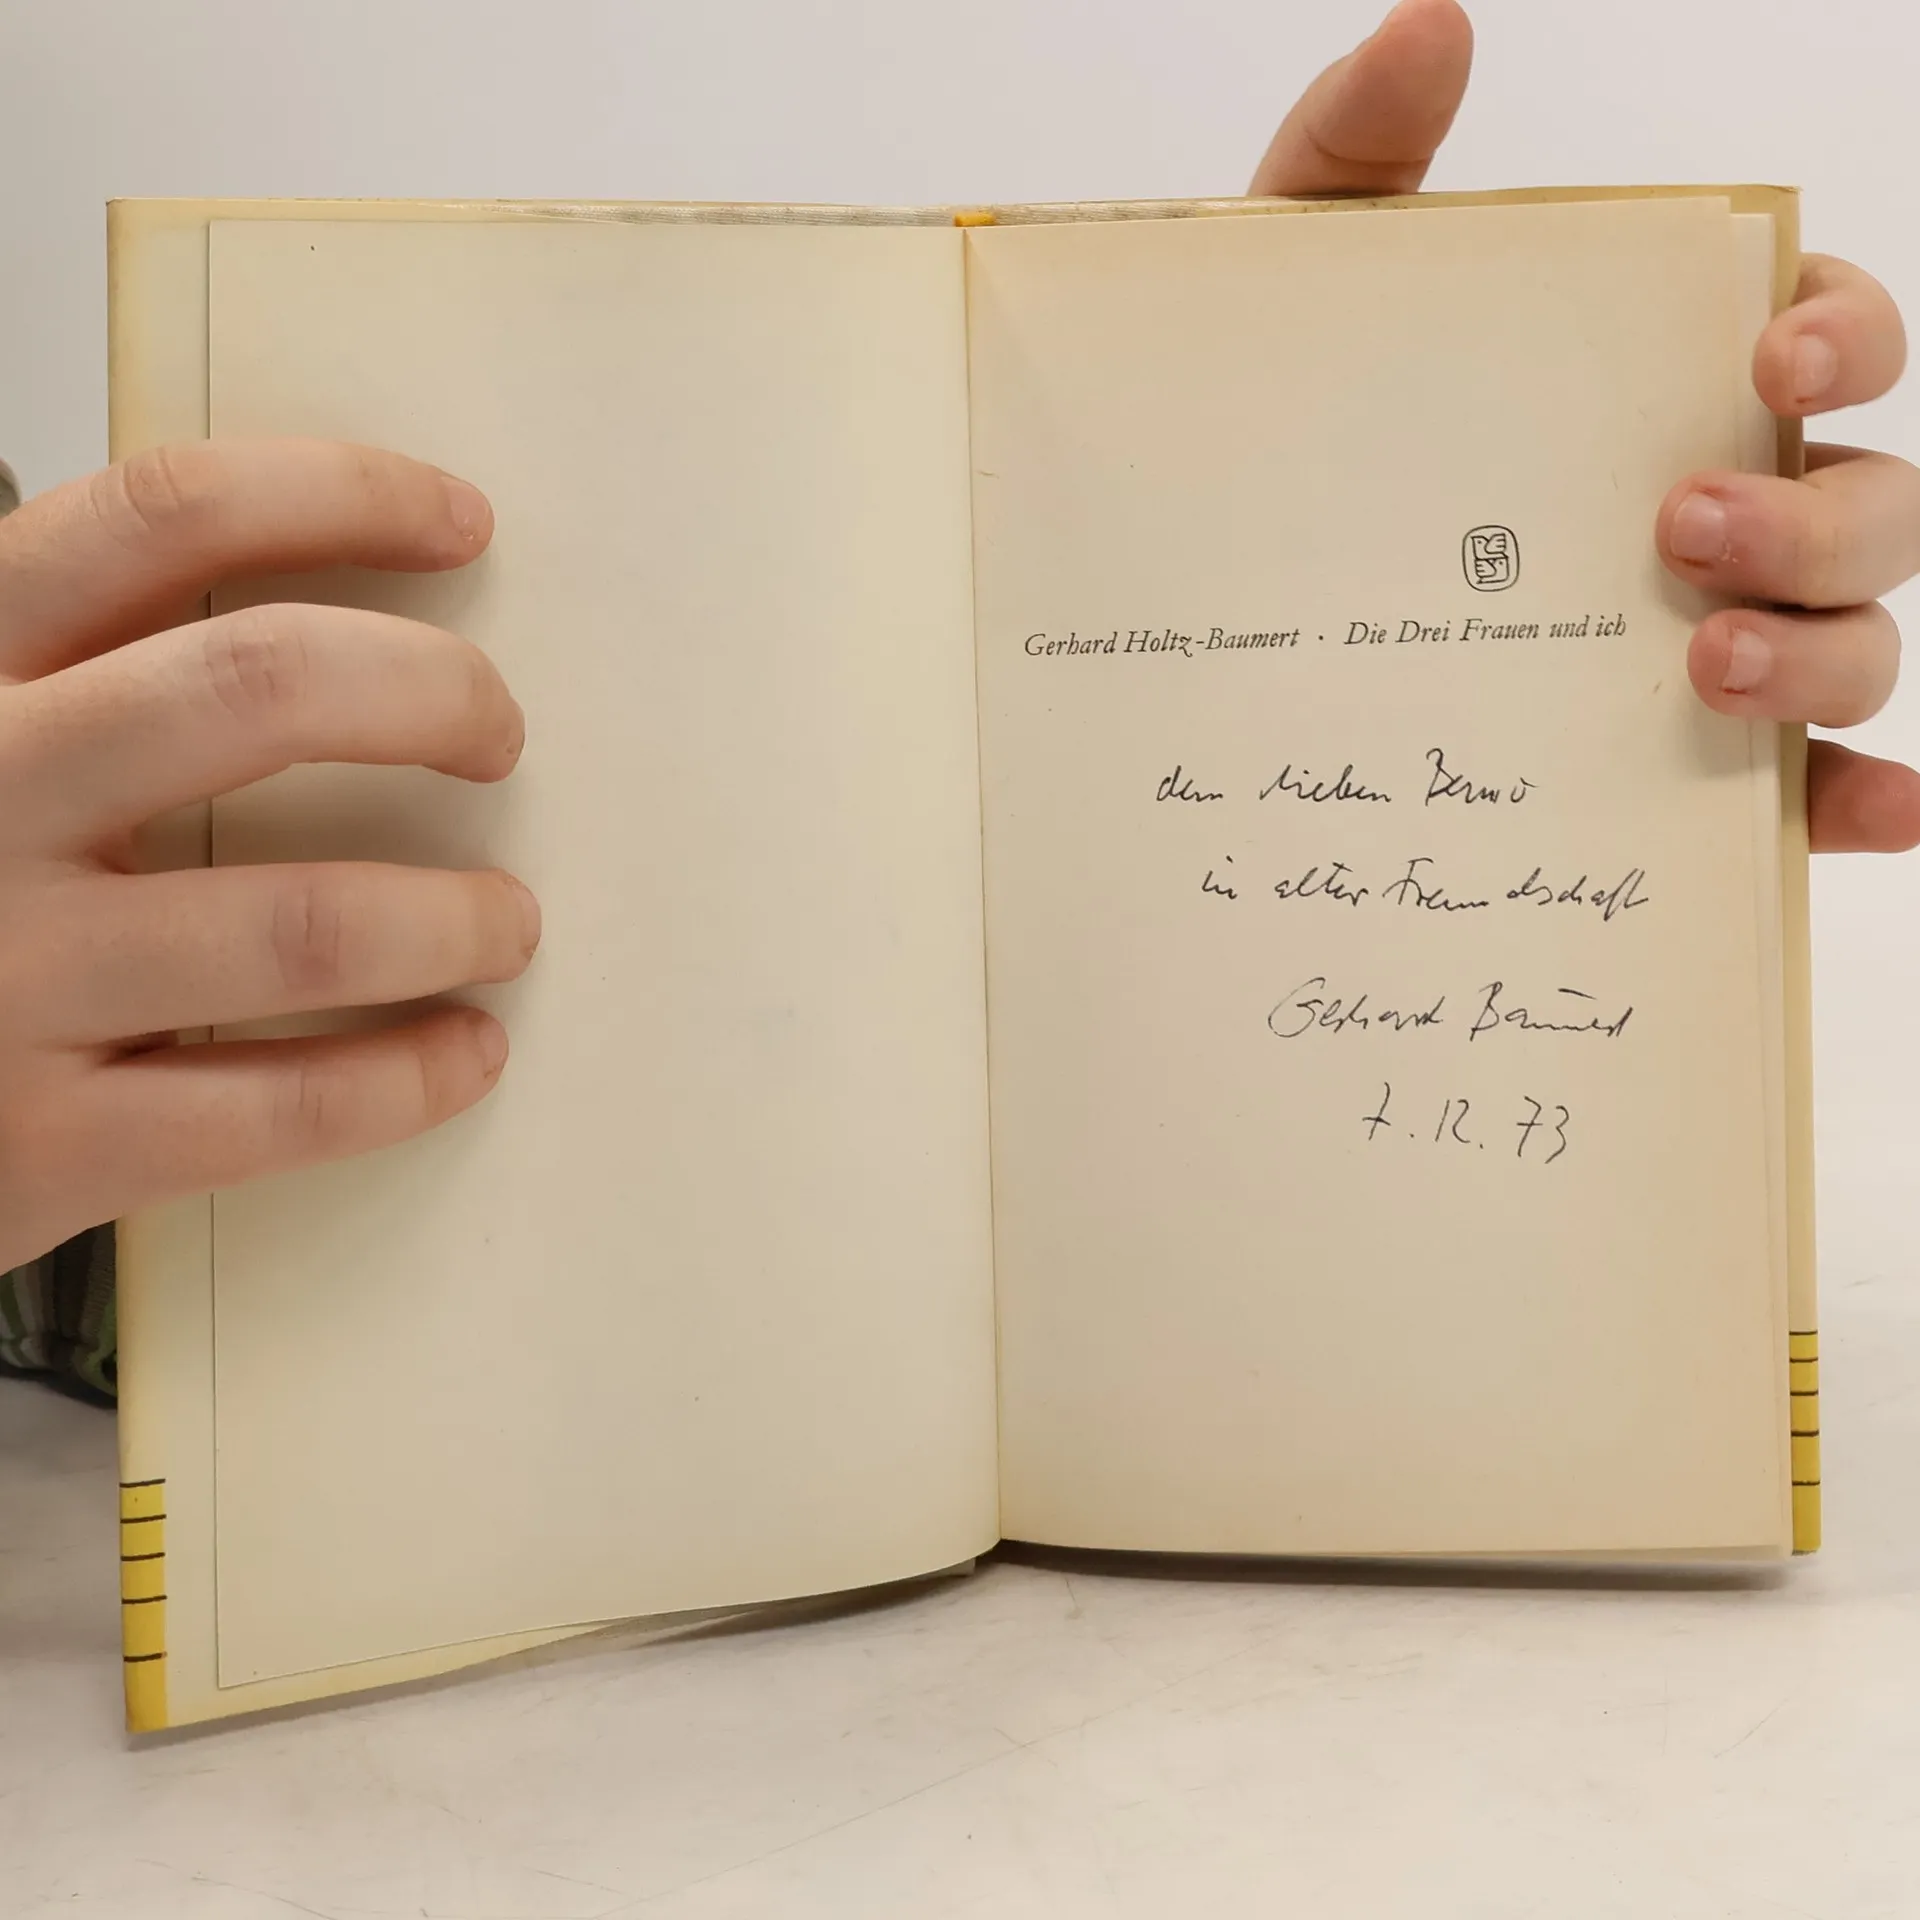 Gerhard Holtz-Baumert · Die Drei Frauen und ich
dem lieben
in alter Freundschaft
Gerhard Baumert
7.12.73